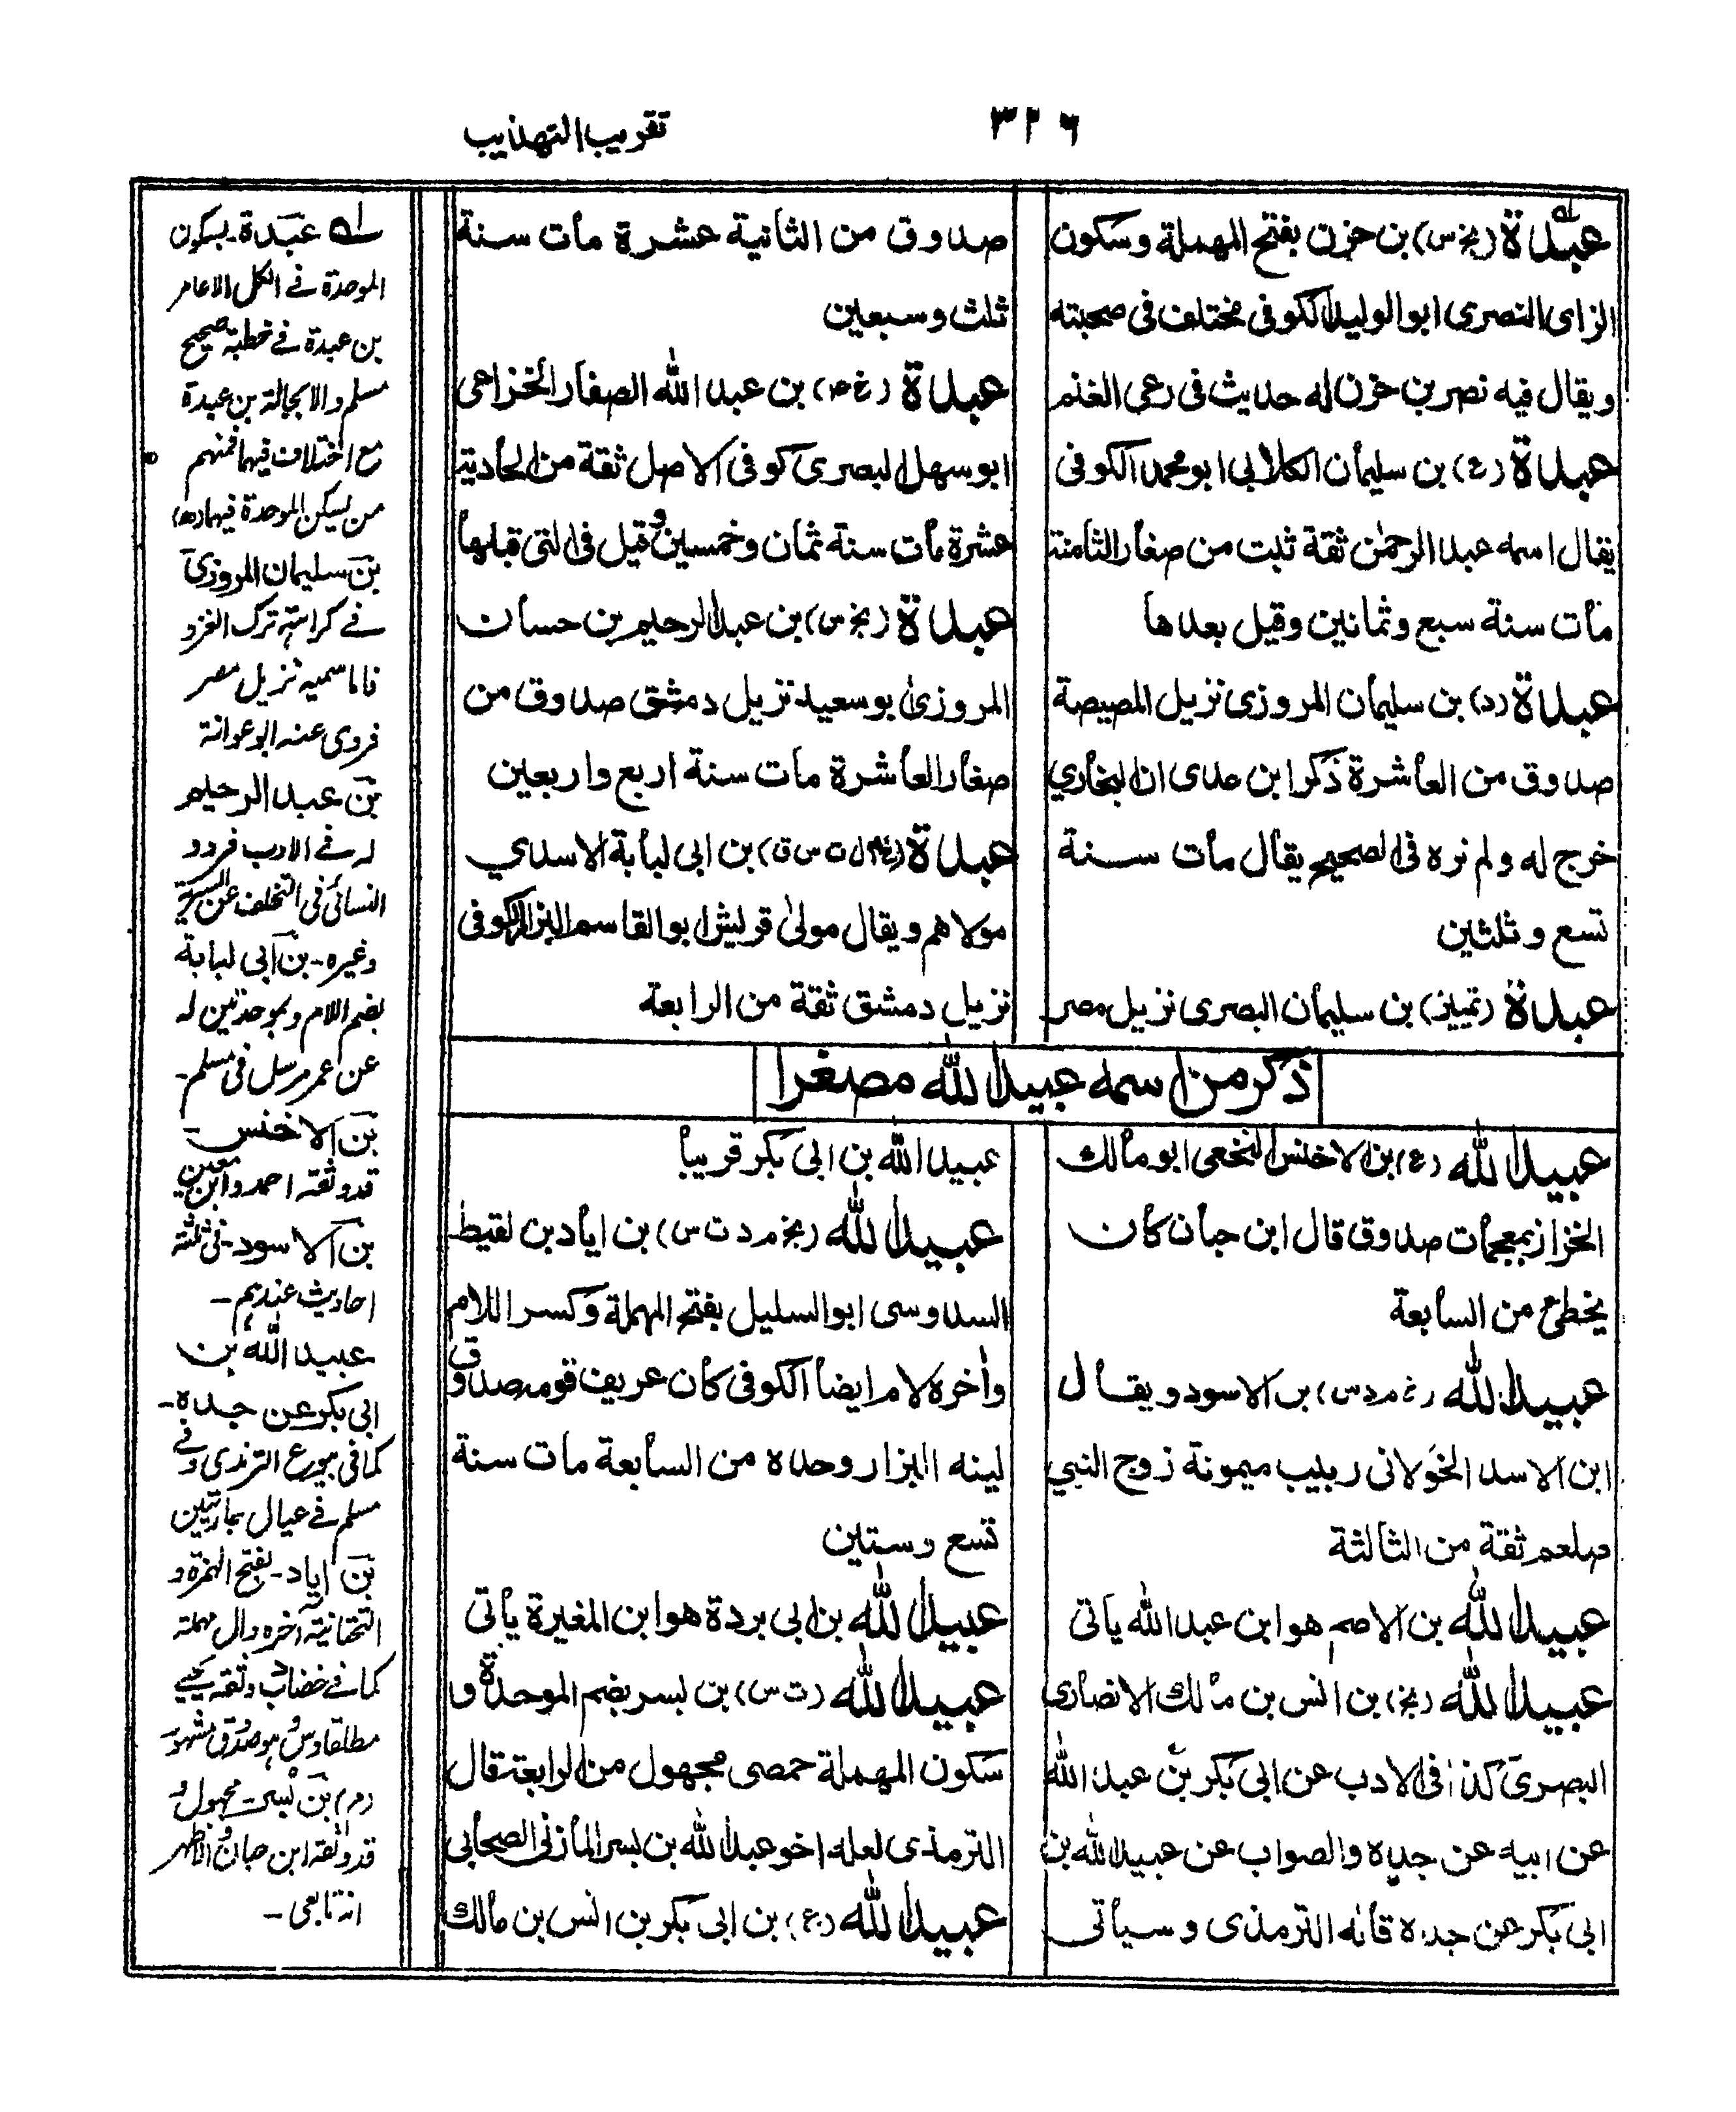 ٣٢٦
تقريب التهذيب
عبدة (بخ س) بن حزن بفتح المهملة وسكون
الزاى النصرى ابو الوليد الكوفى مختلف فى صحبته
ويقال فيه نصر بن حزن له حديث فى رعى الغنم
عبدة (ع) بن سليمان الكلابى ابو محمد الكوفى
يقال اسمه عبد الرحمٰن ثقة ثبت من صغار الثامنة
مات سنة سبع وثمانين وقيل بعدها
عبدة (د) بن سليمان المروزى نزيل المصيصة
صدوق من العاشرة ذكر ابن عدى ان البخاري
خرج له ولم نره فى الصحيح يقال مات سنة
تسع وثلثين
عبدة (تمييز) بن سليمان البصرى نزيل مصر
صدوق من الثانية عشرة مات سنة
ثلث وسبعين
عبدة (خ ٤) بن عبد الله الصفار الخزاعى
ابو سهل البصرى كوفى الاصل ثقة من الحادية
عشرة مات سنة ثمان وخمسين وقيل فى التى قبلها
عبدة (بخ س) بن عبد الرحيم بن حسان
المروزى ابو سعيد نزيل دمشق صدوق من
صغار العاشرة مات سنة اربع واربعين
عبدة (خ م ل ت س ق) بن ابى لبابة الاسدي
مولاهم ويقال مولىٰ قريش ابو القاسم البزاز الكوفى
نزيل دمشق ثقة من الرابعة
ذكر من اسمه عبيد الله مصغرا
عبيد الله (ع) بن الاخنس النخعى ابو مالك
الخزاز بمعجمات صدوق قال ابن حبان كان
يخطئ من السابعة
عبيد الله (خ م د س) بن الاسود ويقال
ابن الاسد الخولانى ربيب ميمونة زوج النبي
صلعم ثقة من الثالثة
عبيد الله بن الاصم هو ابن عبد الله ياتى
عبيد الله (بخ) بن انس بن مالك الانصارى
البصرى كذا فى الادب عن ابى بكر بن عبد الله
عن ابيه عن جده والصواب عن عبيد الله بن
ابى بكر عن جده قاله الترمذى وسيأتى
عبيد الله بن ابى بكر قريبا
عبيد الله (بخ م د ت س) بن اياد بن لقيط
السدوسى ابو السليل بفتح المهملة وكسر اللام
واخره لام ايضا الكوفى كان عريف قومه صدوق
لينه البزار وحده من السابعة مات سنة
تسع وستين
عبيد الله بن ابى بردة هو ابن المغيرة يأتى
عبيد الله (ت س) بن بسر بضم الموحدة و
سكون المهملة حمصى مجهول من الرابعة قال
الترمذى لعله اخو عبد الله بن بسر المازنى الصحابى
عبيد الله (ع) بن ابى بكر بن انس بن مالك
له عبدة - بسكون
الموحدة فے الكل الا عامر
بن عبدة فے خطبة صحيح
مسلم والا بجالة بن عبدة
مع اختلاف فيهما فمنهم
من يسكن الموحدة فيهما
بن سليمان المروزى
فے كراهية ترك الغزو
نزيل مصر
فروى عنه ابو عوانة
بن عبد الرحيم
له فے الادب فرد و
النسائى فى التخلف عن
وغيره - بن ابى لبابة
بضم اللام وبموحدتين له
عن عمر مرسل فى مسلم -
بن الاخنس -
قد وثقه احمد وابن معين
بن الاسود - فى ثلثة
احاديث عندهم -
عبيد الله بن
ابى بكر عن جده -
كما فى بيوع الترمذى وفے
مسلم فے عيال جاريتين
بن اياد - بفتح الهمزة و
التحتانية آخره دال مهملة
كما فے خضاب وثقه يحيے
مطلقا
بن بسر - مجهول و
قد وثقه ابن حبان والاظهر
انه تابعى -